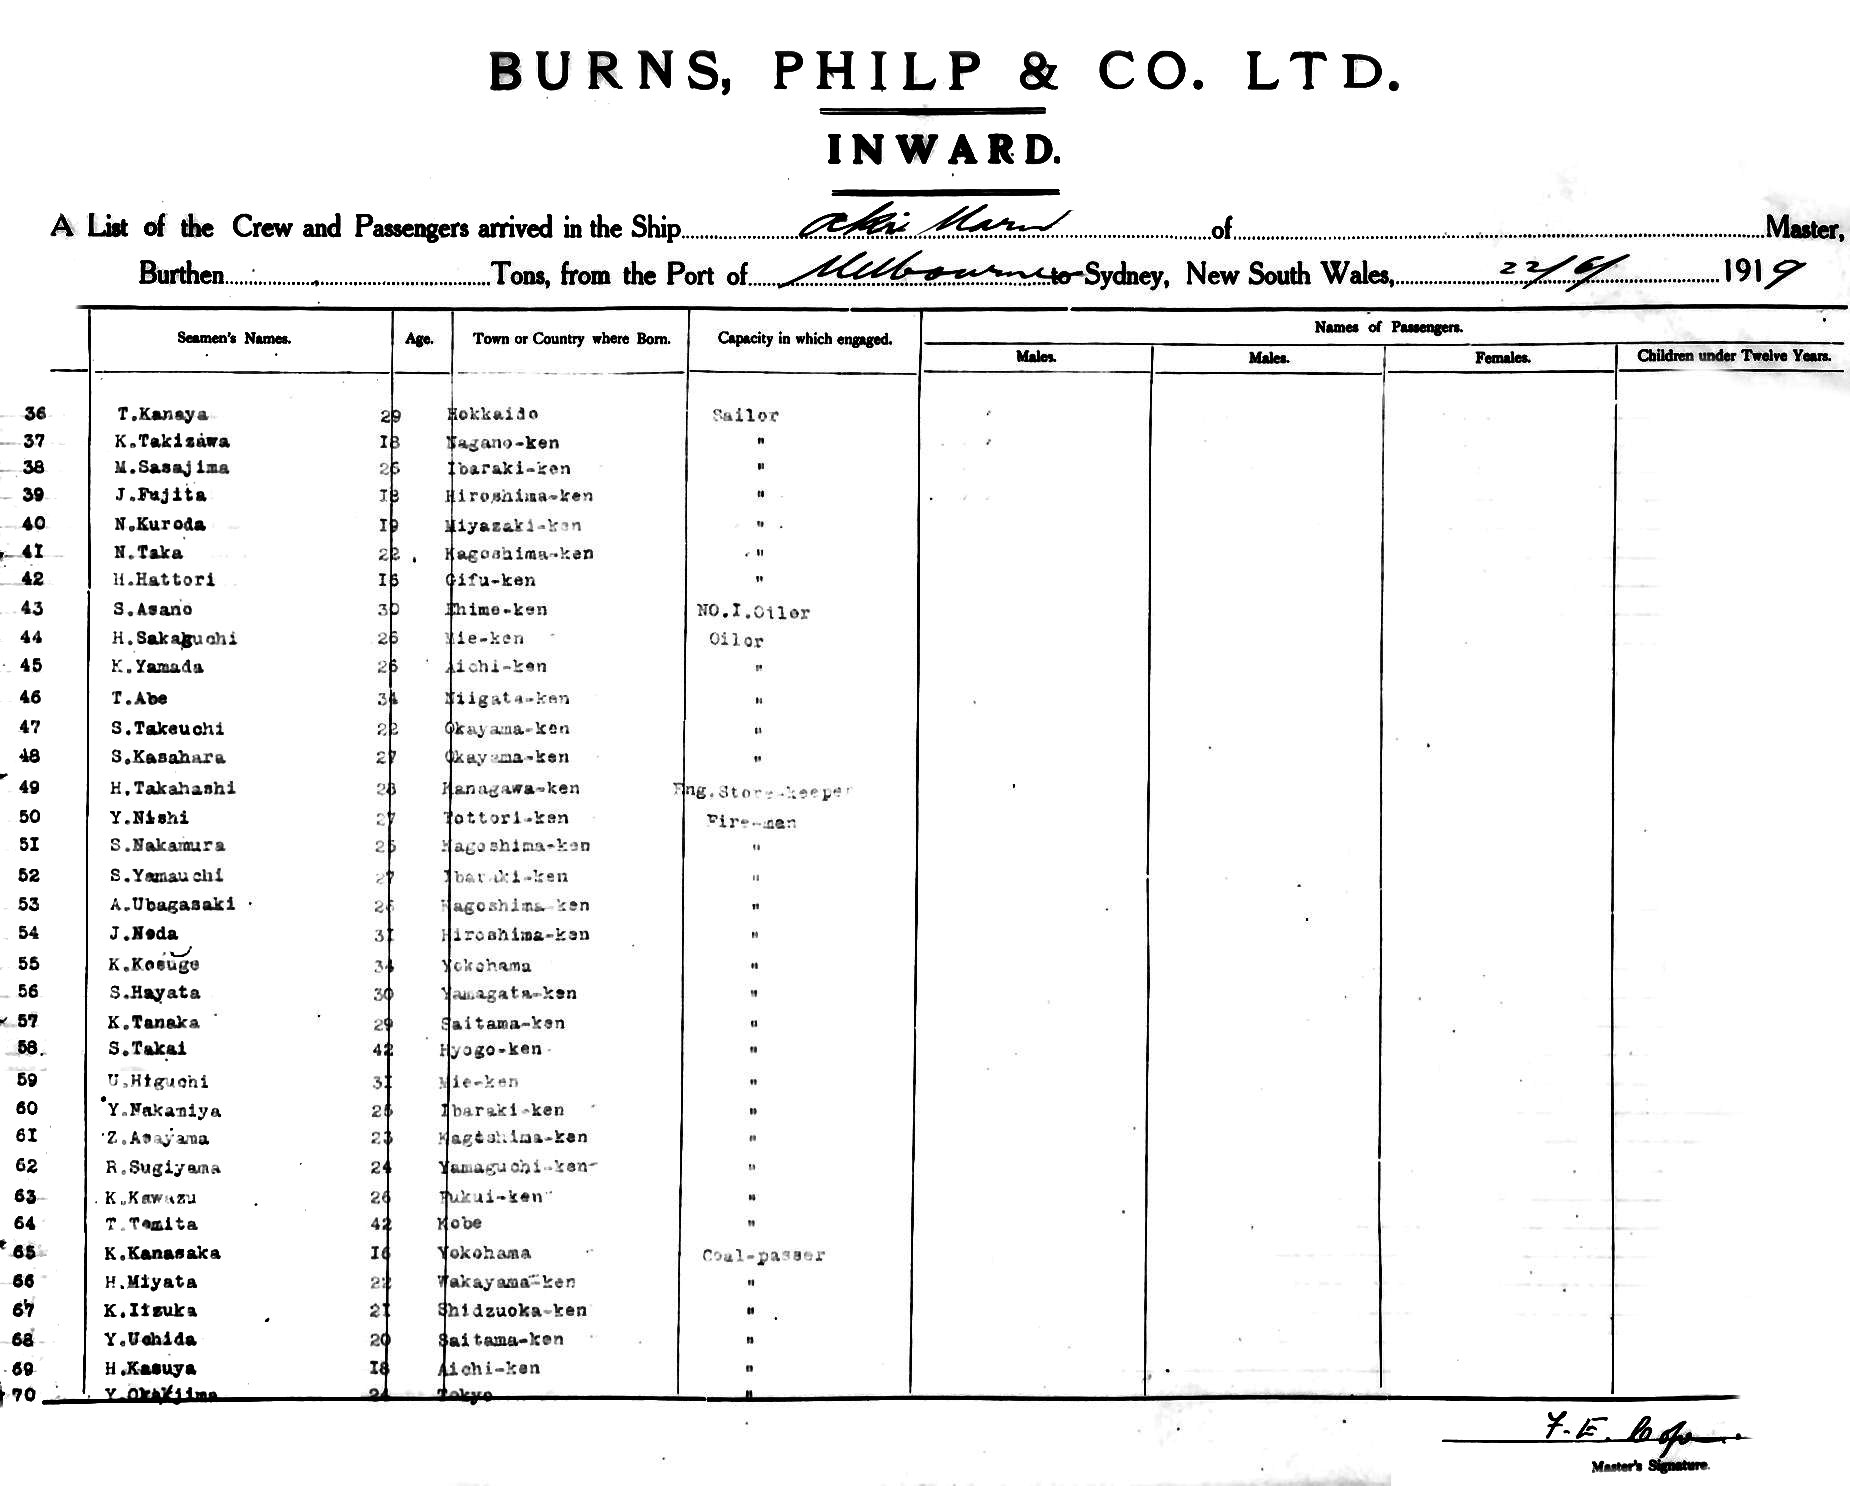 BURNS, PHILP & CO. LTD.
INWARD.
A List of the Crew and Passengers arrived in the Ship Akii Maru of Master,
Burthen Tons, from the Port of Melbourne to Sydney, New South Wales, 22/6/ 1919
Names of Passengers.
Seamen's Names. Age. Town or Country where Born. Capacity in which engaged. Males. Males. Females. Children under Twelve Years.
36 T.Kanaya 29 Hokkaido Sailor
37 K.Takizawa I8 Nagano-ken "
38 M.Sasajima 26 Ibaraki-ken "
39 J.Fujita I8 Hiroshima-ken "
40 N.Kuroda I9 Miyazaki-ken "
4I N.Taka 22 Kagoshima-ken "
42 H.Hattori I6 Gifu-ken "
43 S.Asano 30 Ehime-ken NO.I.Oiler
44 H.Sakaguchi 26 Mie-ken Oiler
45 K.Yamada 26 Aichi-ken "
46 T.Abe 34 Niigata-ken "
47 S.Takeuchi 22 Okayama-ken "
48 S.Kasahara 27 Okayama-ken "
49 H.Takahashi 28 Kanagawa-ken Eng.Store-keeper
50 Y.Nishi 27 Tottori-ken Fire-man
5I S.Nakamura 25 Kagoshima-ken "
52 S.Yamauchi 27 Ibaraki-ken "
53 A.Ubagasaki 26 Kagoshima-ken "
54 J.Neda 3I Hiroshima-ken "
55 K.Kosuge 34 Yokohama "
56 S.Hayata 30 Yamagata-ken "
57 K.Tanaka 29 Saitama-ken "
58. S.Takai 42 Hyogo-ken "
59 U.Higuchi 3I Mie-ken "
60 Y.Nakamiya 25 Ibaraki-ken "
6I Z.Asayama 23 Kagoshima-ken "
62 R.Sugiyama 24 Yamaguchi-ken "
63 K.Kawazu 26 Fukui-ken "
64 T.Tomita 42 Kobe "
65 K.Kanasaka I6 Yokohama Coal-passer
66 H.Miyata 22 Wakayama-ken "
67 K.Iizuka 2I Shidzuoka-ken "
68 Y.Uchida 20 Saitama-ken "
69 H.Kasuya I8 Aichi-ken "
70 Y.Okajima 24 Tokyo "
F. E. Cope
Master's Signature.